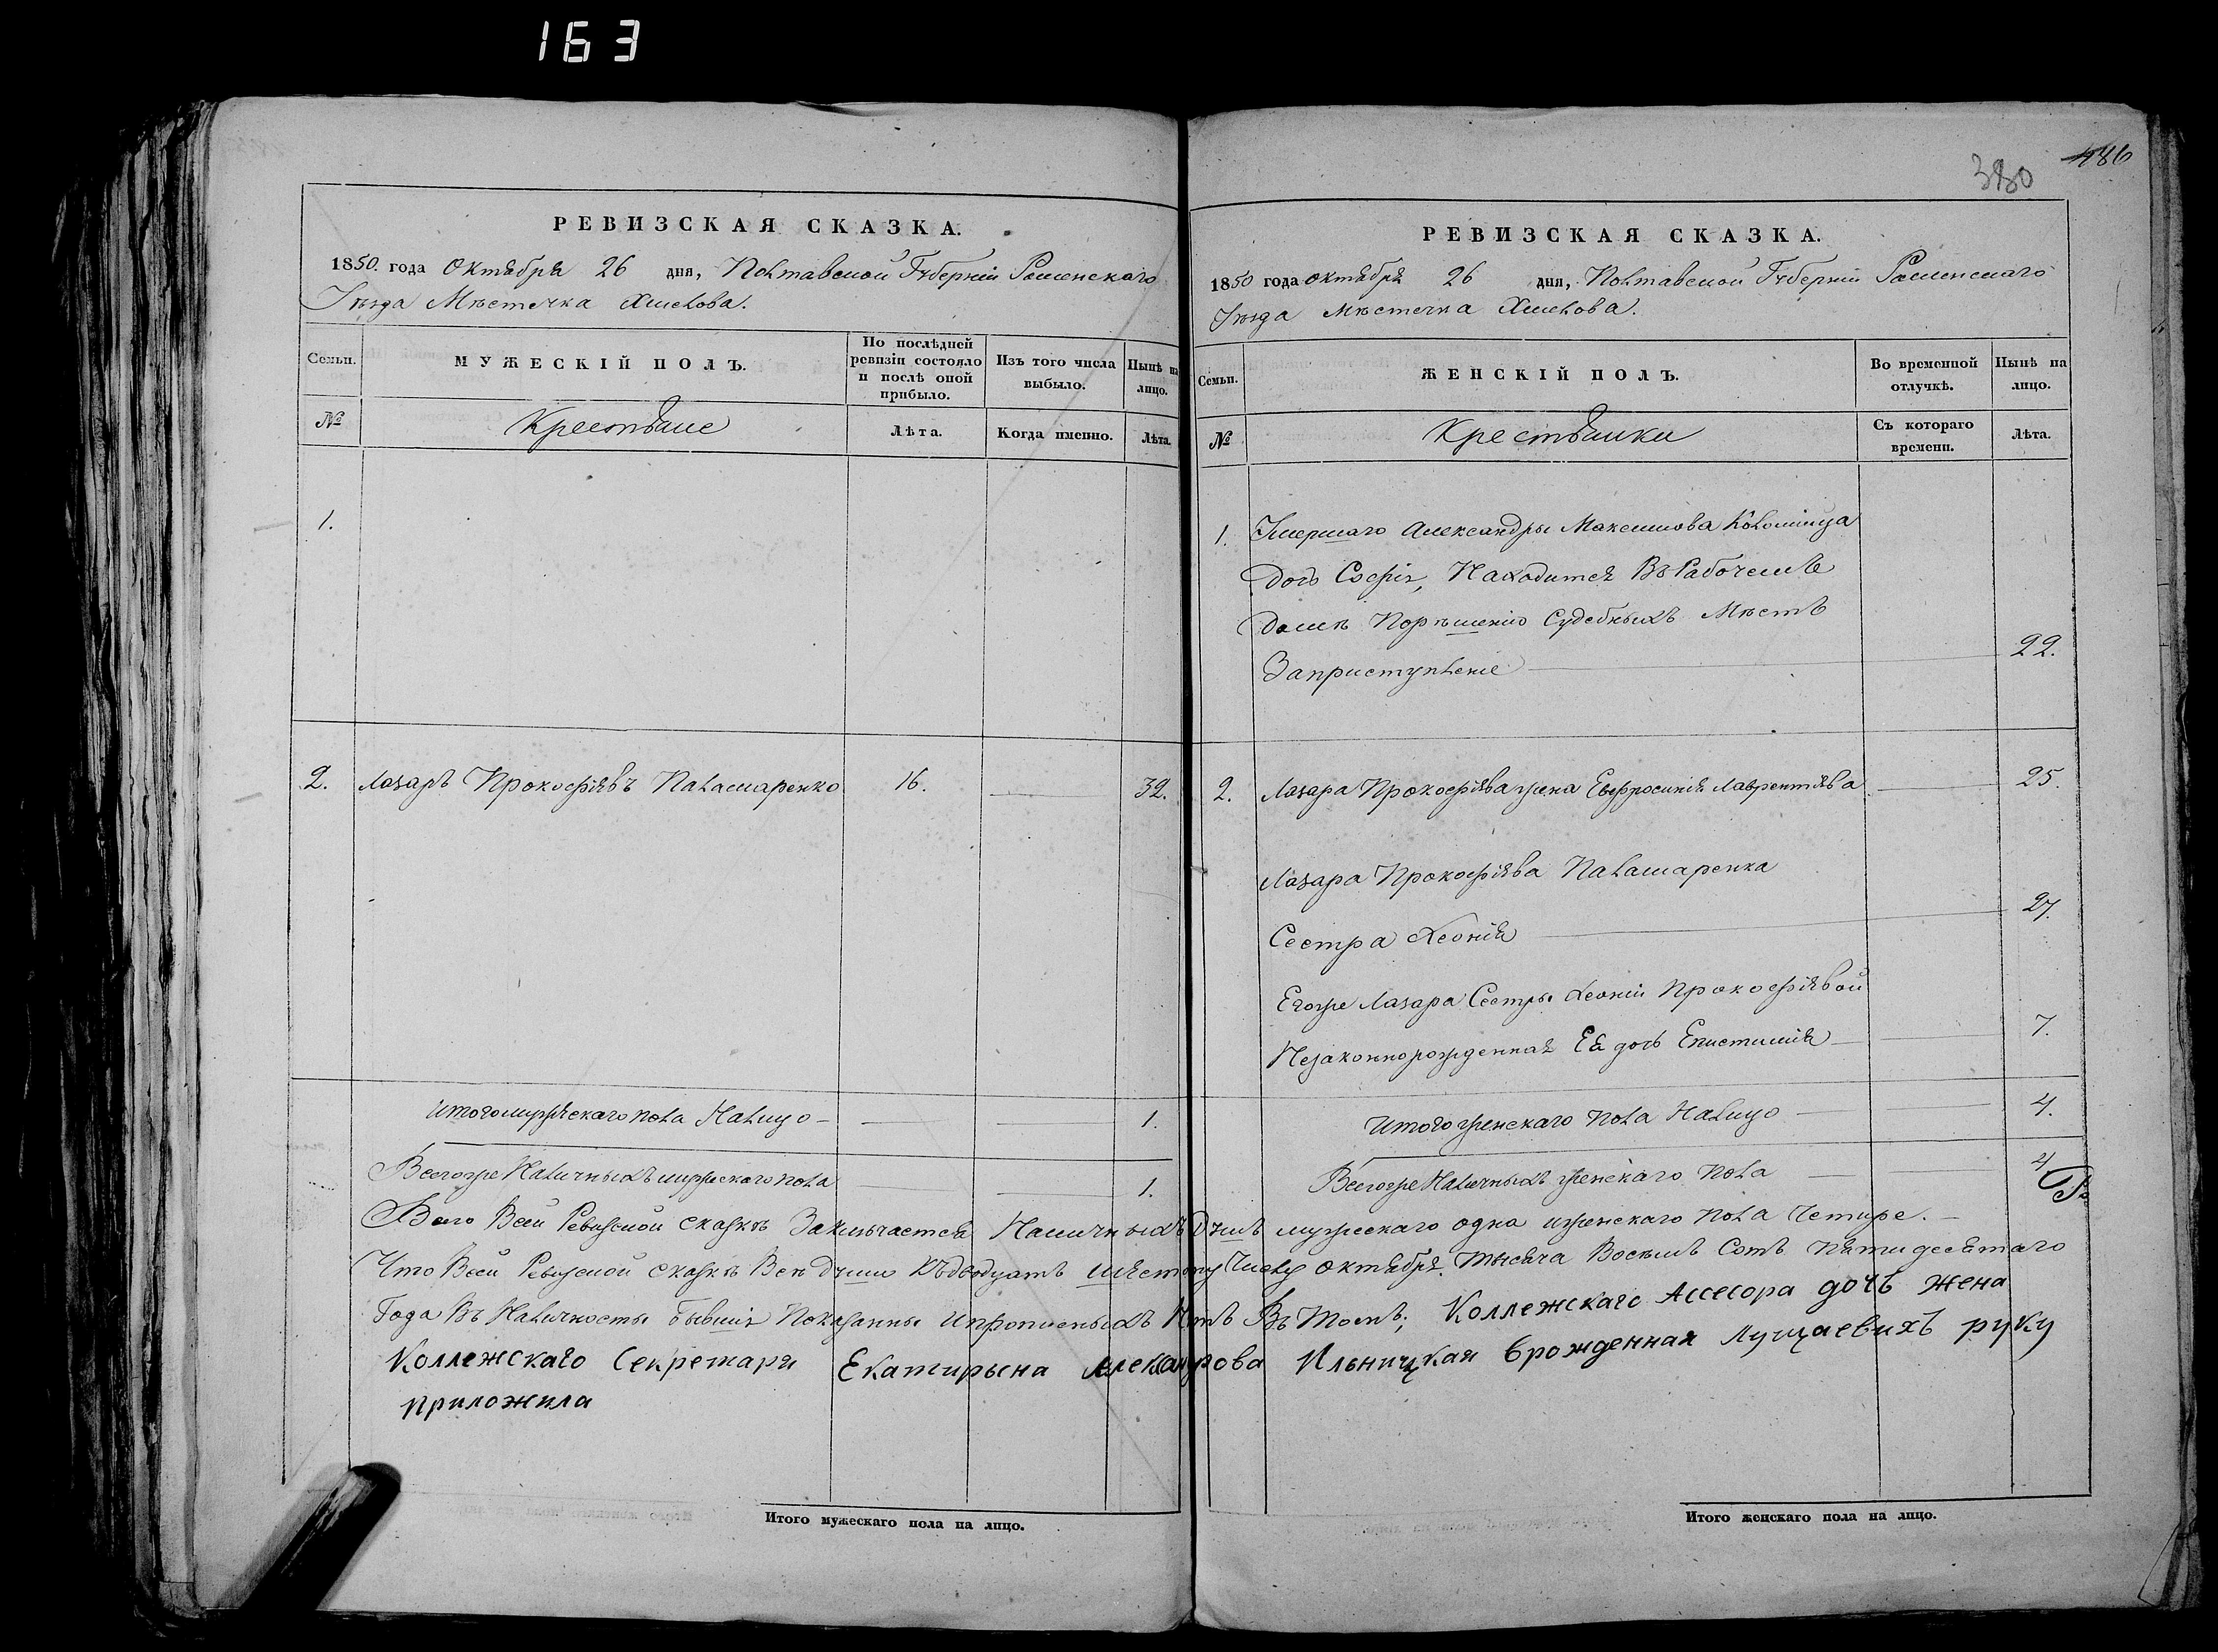 163
РЕВИЗСКАЯ СКАЗКА.
1850. года Октября 26 дня, Полтавской Губерніи Роменскаго
Уезда Мѣстечка Хмелова.
Семьи.
МУЖЕСКІЙ ПОЛЪ.
По послѣдней ревизіи состояло и послѣ оной прибыло.
Изъ того числа выбыло.
Нынѣ на лицо.
№
Крестьяне
Лѣта.
Когда именно.
Лѣта.
1.
2. Лазаръ Прокофіявъ Паламаренко 16. 32.
Итого мужескаго пола Налицо 1.
Всегоже Наличныхъ мужескаго пола 1.
380
486
РЕВИЗСКАЯ СКАЗКА.
1850 года октября 26 дня, Полтавской Губерніи Роменскаго
Уезда Мѣстечка Хмелова.
Семьи.
ЖЕНСКІЙ ПОЛЪ.
Во временной отлучкѣ.
Нынѣ на лицо.
№
Крестьянки
Съ котораго времени.
Лѣта.
1. Умершаго Александры Максимова Коломійца
дочь Софія, Находится Въ Рабочемъ
домѣ Порѣшенію Судебныхъ Мѣстъ
Заприступленіе 22.
2. Лазара Прокофіява жена Евфросинія Лаврентіява 25.
Лазара Прокофіява Паламаренка
Сестра Хеонія 27.
Егоже Лазара Сестры Хеоніи Прокофіявой
Незаконнорожденная Ея дочь Епистимія 7.
Итого женскаго пола Налицо 4.
Всегоже Наличныхъ женскаго пола 4
Всего Всей Ревизской сказкѣ Заключается Наличныхъ Душъ мужескаго одна иженскаго пола Четире.
Что Всей Ревизской сказкѣ Всѣ души Къдвадцать шястому Числу октября Тысяча Восемъ Сотъ пятидесятаго
Года Въ Наличности Бывшія Показанны ипрописныхъ Нѣтъ Въ Томъ; Коллежскаго Ассесора дочъ жена
Коллежскаго Секретаря Екатирына Александрова Ильницкая врожденная Лущаевихъ руку
приложила
Итого мужескаго пола на лицо.
Итого женскаго пола на лицо.